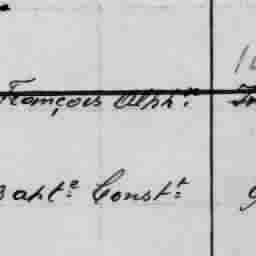 François Alph.e
Bapt.e Const.t